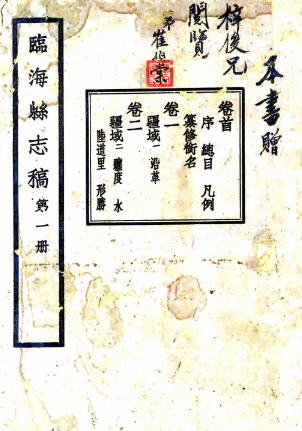 本書贈
梓俊兄
閱覽
弟崔
卷首
序 總目 凡例
纂修銜名
卷一
疆域一 沿革
卷二
疆域二 躔度 水
陸道里 形勝
臨海縣志稿 第一册